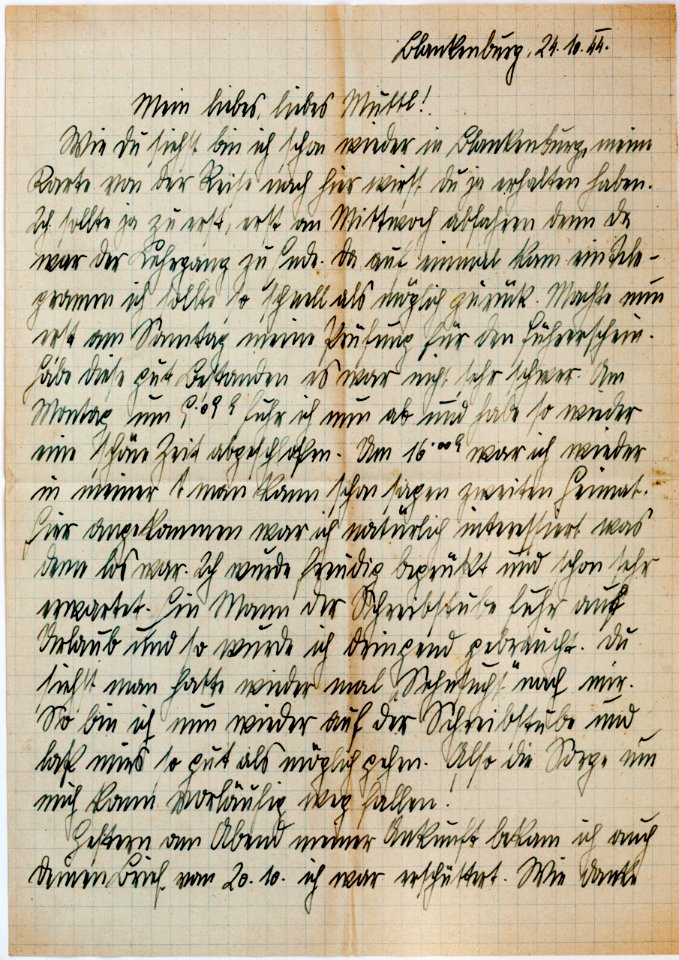 Blankenburg, 24.10.44.
Mein liebes, liebes Muttl!
Wie Du siehst bin ich schon wieder in Blankenburg, meine
Karte von der Reise nach hier wirst du ja erhalten haben.
Ich sollte ja zu erst, erst am Mittwoch abfahren denn da
war der Lehrgang zu Ende. Da auf einmal kam ein Tele-
gramm ich sollte so schnell als möglich zurück. Machte nun
erst am Sonntag meine Prüfung für den Führerschein.
Habe diese gut bestanden es war nicht sehr schwer. Am
Montag um fuhr ich nun ab und habe so wieder
eine schöne Zeit abgeschlossen. Um 16.00h war ich wieder
in meiner man kann schon sagen zweiten Heimat.
Hier angekommen war ich natürlich interessiert was
denn los war. Ich wurde freudig begrüßt und schon sehr
erwartet. Ein Mann der Schreibstube fuhr auf
Urlaub und so wurde ich dringend gebraucht. Du
siehst man hatte wieder mal „Sehnsucht" nach mir.
So bin ich nun wieder auf der Schreibstube und
laß mirs so gut als möglich gehen. Also die Sorge um
mich kann vorläufig weg fallen.
Gestern am Abend meiner Ankunft bekam ich auch
deinen Brief vom 20.10. ich war erschüttert. Wie danke